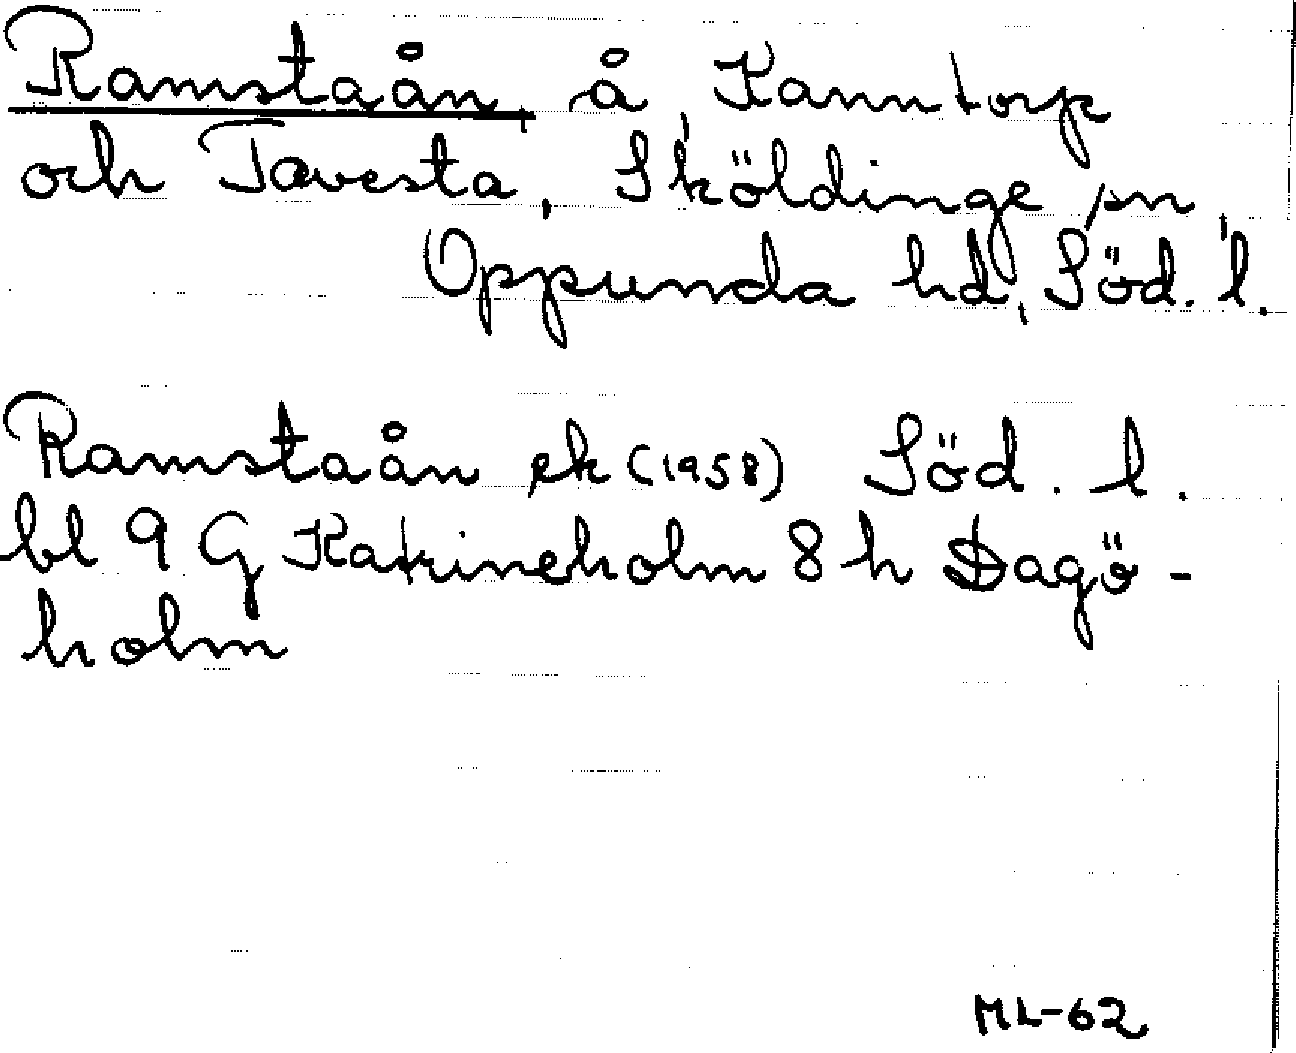 Ramstaån, å, Kanntorp
och Tavesta, Sköldinge sn,
Oppunda hd, Söd. l.
Ramstaån ek (1958) Söd. l.
bl 9 G Katrineholm 8 h Dagö-
holm
ML-62